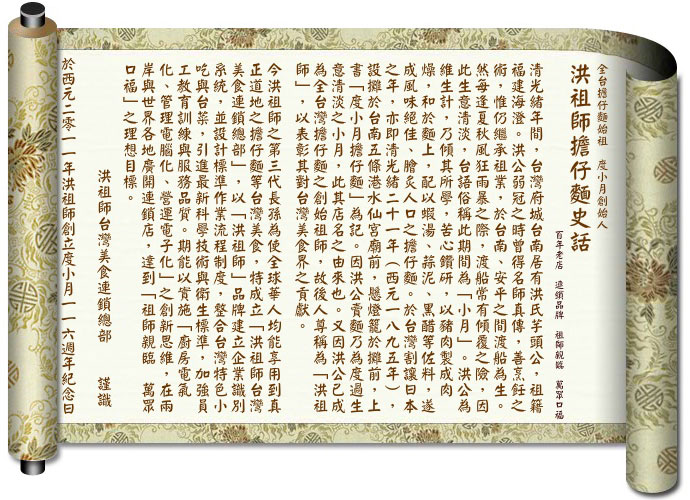 全台擔仔麵始祖　度小月創始人
洪祖師擔仔麵史話
百年老店　連鎖品牌　祖師親臨　萬眾口福
清光緒年間，台灣府城台南居有洪氏芋頭公，祖籍
福建海澄。洪公弱冠之時曾得名師真傳，善烹飪之
術，惟仍繼承祖業，於台南、安平之間渡船為生。
然每逢夏秋風狂雨暴之際，渡船常有傾覆之險，因
此生意清淡，台語俗稱此期間為「小月」。洪公為
維生計，乃傾其所學，苦心鑽研，以豬肉製成肉
燥，和於麵上，配以蝦湯、蒜泥、黑醋等佐料，遂
成風味絕佳、膾炙人口之擔仔麵。於台灣割讓日本
之年，亦即清光緒二十一年（西元一八九五年），
設攤於台南五條港水仙宮廟前，懸燈籠於攤前，上
書「度小月擔仔麵」為記。因洪公賣麵乃為度過生
意清淡之小月，此其店名之由來也。又因洪公已成
為全台灣擔仔麵之創始祖師，故後人尊稱為「洪祖
師」，以表彰其對台灣美食界之貢獻。
今洪祖師之第三代長孫為使全球華人均能享用到真
正道地之擔仔麵等台灣美食，特成立「洪祖師台灣
美食連鎖總部」，以「洪祖師」品牌建立企業識別
系統，並設計標準作業流程制度，整合台灣特色小
吃與台菜，引進最新科學技術與衛生標準，加強員
工教育訓練與服務品質。期能以實施「廚房電氣
化、管理電腦化、營運電子化」之創新思維，在兩
岸與世界各地廣開連鎖店，達到「祖師親臨　萬眾
口福」之理想目標。
洪祖師台灣美食連鎖總部　　謹識
於西元二零一一年洪祖師創立度小月一一六週年紀念日